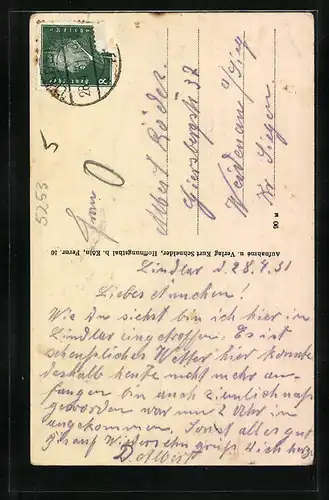 5253
5
Frau
Albert Röder.
Giersbergstr 37
Weidenau a/Sieg
Kr. Siegen.
Aufnahme u. Verlag Kurt Schneider, Hoffnungsthal b. Köln, Fernr. 50
Lindlar d. 28.4.31
Liebes Annchen!
Wie Du siehst bin ich hier in
Lindlar eingetroffen. Es ist
scheussliches Wetter hier konnte
deshalb heute nicht mehr an-
fangen bin auch ziemlich naß
geworden war um 2 Uhr in
angekommen. Sonst alles gut
auf Wiedersehn grüß dich
D. Albert